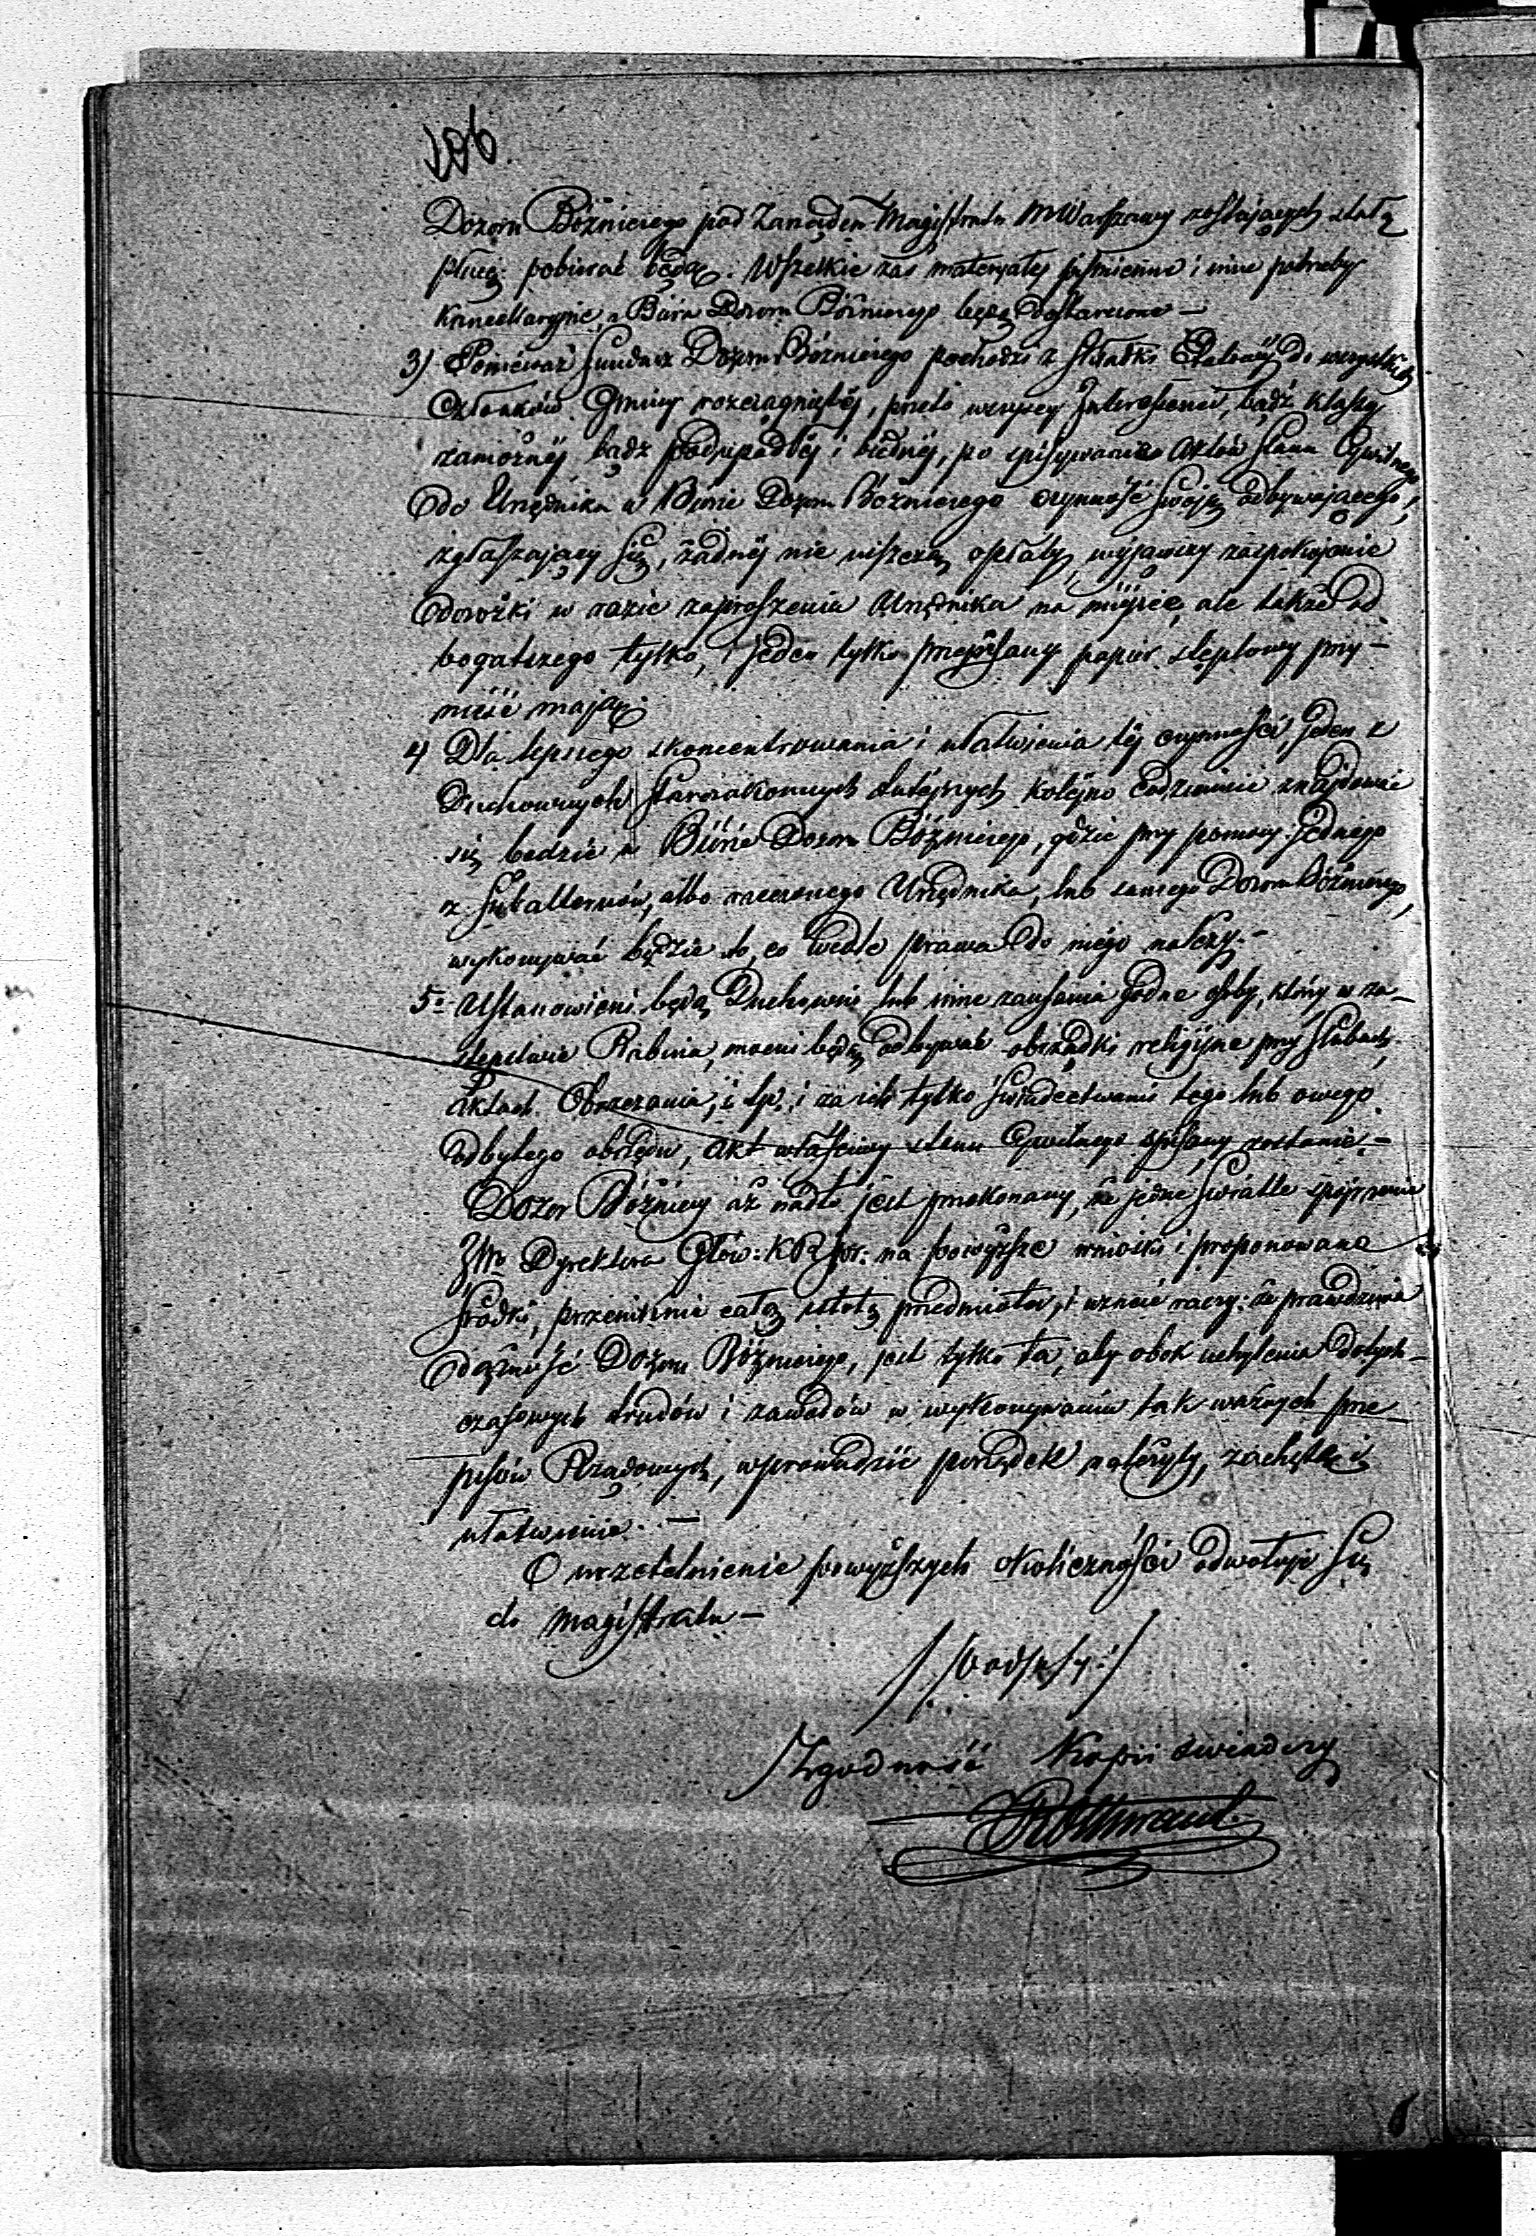 196
Dozoru Bóźniczego pod Zarządem Magistratu MWarszawy zostających stałą
płacę pobierać będą. Wszelkie zaś materyały piśmienne i inne potrzeby
kancellaryjne z Biura Dozoru Bóźniczego będą dostarczone —
3) Ponieważ fundusz Dozoru Bóźniczego pochodzi z składki Etatowéj do wszystkich
Członków Gminy rozciągniętéj, przeto wszyscy Interesenci, bądź klassy
zamożnéj bądź podupadłéj i biednéj, po spisywanie Aktów Stanu Cywilnego
do Urzędnika w Biurze Dozoru Bóźniczego czynność swoję odbywającego,
zgłaszający się, żadnéj nie uiszczą opłaty, wyjąwszy zaspokojenie
dorożki w razie zaproszenia Urzędnika na miejsce, ale także od
bogatszego tylko, i jeden tylko przepisany papier stęplowy przy-
nieść mają.
4 Dla lepszego skoncentrowania i ułatwienia téj czynności, jeden z
Duchownych Starozakonnych tutejszych kolejno codziennie znajdować
się będzie w Biurze Dozoru Bóźniczego, gdzie przy pomocy jednego
z Subalternów, albo rzeczonego Urzędnika, lub samego Dozoru Bóźniczego,
wykonywać będzie to, co wedle prawa do niego należy. —
5o Ustanowieni będą Duchowni lub inne zaufania godne osoby, którzy w za-
stępstwie Rabina, mocni będą odbywać obrządki religijne przy Ślubach,
Aktach Obrzezania, i tp. i za ich tylko świadectwami tego lub owego
odbytego obrzędu, akt właściwy stanu Cywilnego spisany zostanie. —
Dozor Bóźniczy aż nadto jest przekonany, że jedne światłe spójrzenie
JWo Dyrektora Głów: KR na powyższe wnioski i proponowane
środki, przeniknie całą istotę przedmiotów, i uznać raczy: że prawdziwa
dążność Dozoru Bóźniczego, jest tylko ta, aby obok uchylenia dotych-
czasowych trudów i zawodów w wykonywaniu tak ważnych prze-
pisów Rządowych, wprowadzić porządek należyty, zachętę i
ułatwienie. —
O urzetelnienie powyższych okoliczności odwołuje się
do Magistratu —
/:podpisy:/
Zgodność Kopii świadczy